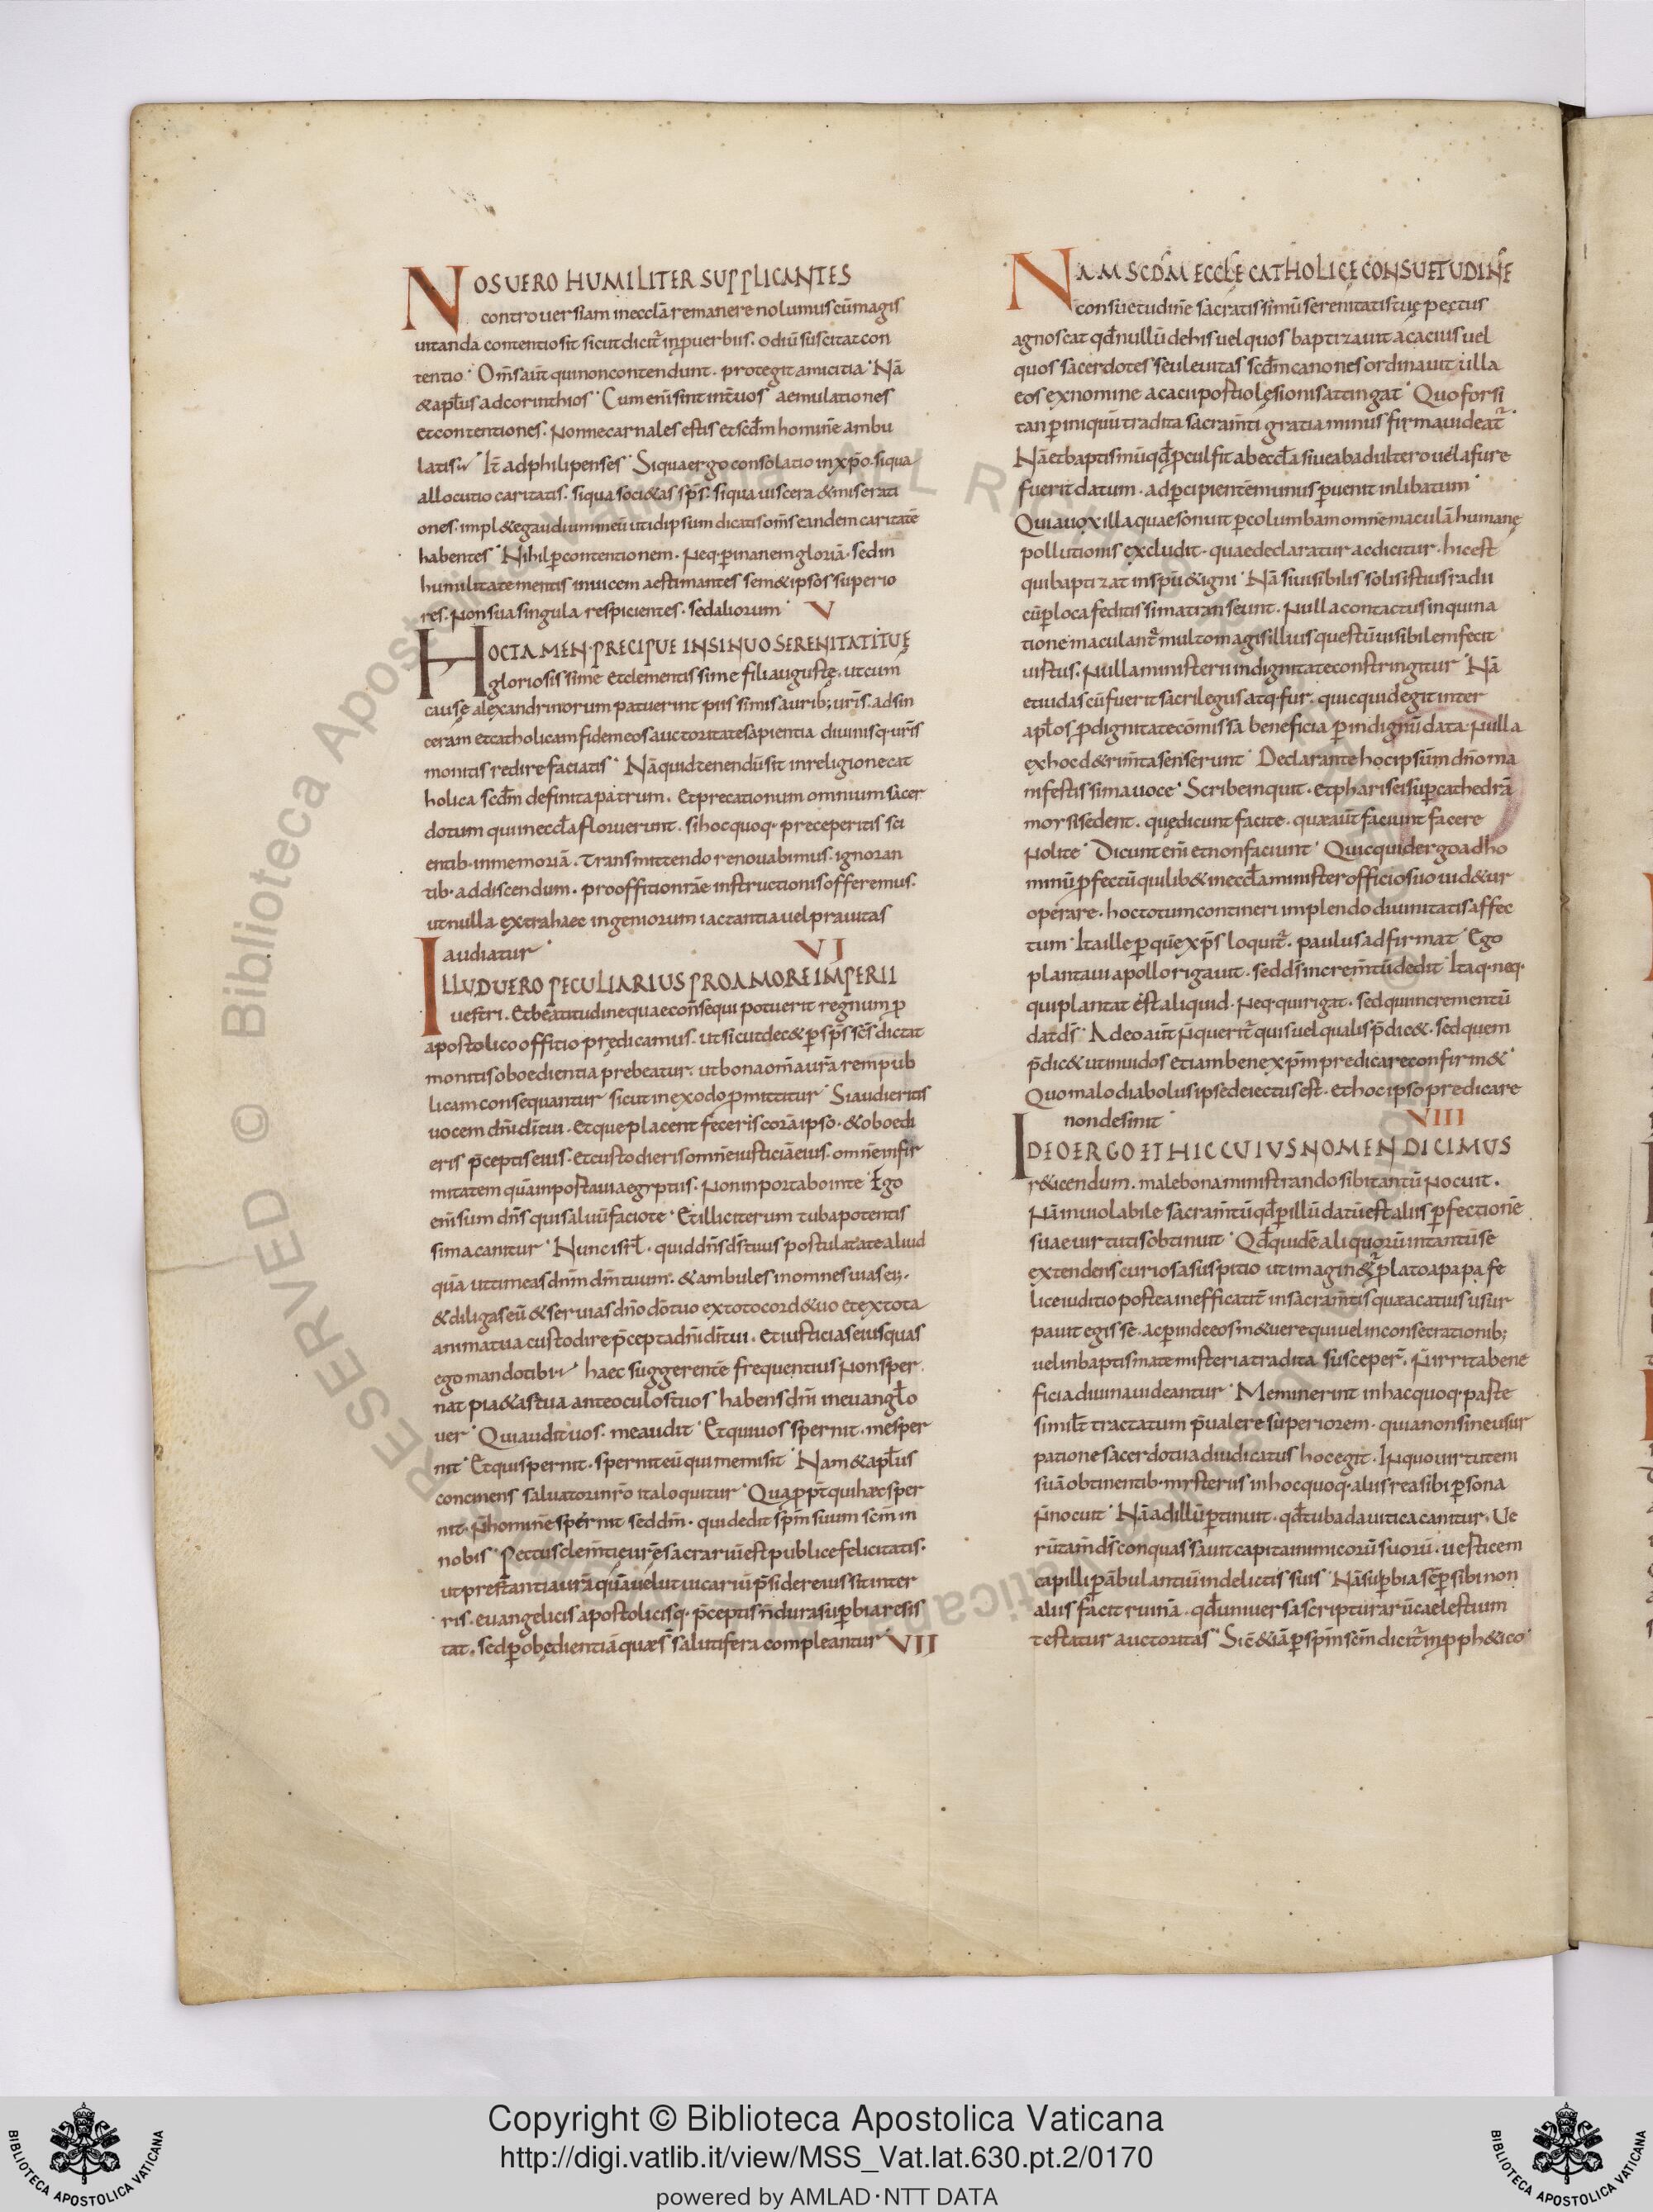 NOS UERO HUMILITER SUPPLICANTES
controuersiam in ecclā remanere nolumus cū magis
uitanda contentio sit sicut dicit̄ in puerbiis. odiū suscitat con
tentio. Om̄s aūt qui non contendunt. protegit amicitia. Nā
& apl̄us ad corinthios. Cum enī sint inter uos aemulationes
et contentiones. Nonne carnales estis et scd̄m hominē ambu
latis. It̄ ad philipenses. Siqua ergo consolatio in xp̄o. siqua
allocutio caritatis. siqua soci&as sp̄s. siqua uiscera & miserati
ones. impl&e gaudium meū ut idipsum dicatis om̄s eandem caritatē
habentes. Nihil p contentionem. Neq. p inanem gloriā. sed in
humilitate mentis inuicem aestimantes sem&ipsos superio
res. Non sua singula respicientes. sed aliorum. V
HOC TAMEN PRECIPUE INSINUO SERENITATI TUĘ
gloriosissime et clementissime fili auguste. ut cum
causę alexandrinorum patuerint piissimis aurib; ur̄is. ad sin
ceram et catholicam fidem eos auctoritate sapientia diuinisq. ur̄is
monitis redire faciatis. Nā quid tenendū sit in religione cat
holica scd̄m definita patrum. Et precationum omnium sacer
dotum qui in eccl̄a floruerunt. si hoc quoq. preceperitis sci
entib. in memoriā. Transmittendo renouabimus. ignoran
tib. ad discendum. pro offitio nr̄ae instructionis offeremus.
ut nulla extra haec ingeniorum iactantia uel prauitas
audiatur. VI
ILLUD UERO PECULIARIUS PRO AMORE IMPERII
uestri. Et beatitudine quae consequi potuerit regnum p
apostolico offitio predicamus. ut sicut dec& p sp̄s sc̄s dictat
monitis oboedientia prebeatur. ut bona om̄a ur̄ā rempub
licam consequantur sicut in exodo pmittitur. Si audieritis
uocem dn̄i dī tui. Et que placent feceris corā ipso. & oboedi
eris p̄ceptis eius. et custodieris omnē iusticiā eius. omnē infir
mitatem quā inposta uia egyptus. Non inporta bo in te. Ego
enī sum dn̄s qui saluū facio te. Et illic iterum tuba potentis
sima canitur. Nunc isrl̄. quid dn̄s d̄s tuus postulat a te aliud
quā ut timeas dn̄m dm̄ tuum. & ambules in omnes uias ei;.
& diligas eū & seruias dn̄o dō tuo ex toto cord& uo et ex tota
anima tua custodire p̄cepta dn̄i dī tui. Et iusticias eius quas
ego mando tibi. haec suggerentē frequentius Non sper
nat pi&as tua ante oculos tuos habens dn̄i in euangl̄o
uer. Qui audit uos. me audit. Et qui uos spernit. me sper
nit. Et qui spernit. spernit eū qui me misit. Nam & apl̄us
concinens saluatori nr̄o ita loquitur. Qua p̄pt̄ qui haec sper
nit. N̄ hominē spernit sed dm̄. qui dedit spm̄ suum scm̄ in
nobis. Pectus clem̄tię ur̄e sacrariū est publice felicitatis.
ut prestantiā ur̄ā quā uelut uicariū p̄sidere iussit inter
ris. euangelicis apostolicisq. p̄ceptis n̄ dura supbia resis
tat. sed p obędientiā quae s̄ salutifera compleantur VII
NAM SCD̄M ECCL̄E CATHOLICĘ CONSUETUDINĒ
consuetudinē sacratissimū serenitatis tuę pectus
agnoscat qd̄ nullū de his uel quos baptizauit acacius uel
quos sacerdotes seu leuitas scd̄m canones ordinauit ulla
eos ex nomine acacii postio lesionis attingat. Quo forsi
tan p iniquū tradita sacram̄ti gratia minus firma uideat̄.
Nā et baptismū qd̄ pcul sit ab eccl̄a siue ab adultero uel a fure
fuerit datum. ad pcipientem munus puenit inlibatum.
Quia uox illa quae sonuit p columbam omnē maculā humanę
pollutionis excludit. quae declaratur ac dicitur. hic est
qui baptizat in spū & igni. Nā si uisibilis solis istius radii
cū p loca feditissima transeunt. Nulla contactus inquina
tione maculant̄ multo magis illius que istū uisibilem fecit
uistus. Nulla ministerii indignitate constringitur. Nā
et iudas cū fuerit sacrilegus atq. fur. quicquid egit inter
apl̄os p dignitate cōmissa beneficia p indignū data Nulla
ex hoc d&rim̄ta senserunt. Declarante hoc ipsum dn̄o ma
nifestissima uoce. Scribe inquit. et pharisei sup cathedrā
morsi sedent. quę dicunt facite. quae aūt faciunt facere
Nolite. Dicunt enī et non faciunt. Quicquid ergo ad ho
minū pfectū quilib& in eccl̄a minister officio suo uid&ur
operare. hoc totum contineri implendo diuinitatis affec
tum. Ita ille p quē xp̄s loquit̄. paulus adfirmat. Ego
plantaui apollo rigauit. sed d̄s increm̄tū dedit. Itaq. neq.
qui plantat est aliquid. Neq. qui rigat. sed qui incrementū
dat d̄s. Adeo aūt N̄ querit̄ quis uel qualis p̄dic&. sed quem
p̄dic& ut inuidos etiam bene xp̄m predicare confirm&.
Quo malo diabolus ipse deiectus est. et hoc ipso predicare
non desinit. VIII
IDEO ERGO ET HIC CUIUS NOMEN DICIMUS
r&icendum. male bona ministrando sibi tantū Nocuit.
Nā inuiolabile sacram̄tū qd̄ p illū datū est aliis pfectionē
suae uirtutis obtinuit. Qd̄ quidē aliquorū in tantū se
extendens curiosa suspitio ut imagin&ur̄ plato a papa fe
lice iuditio postea inefficatit̄ in sacram̄tis quae acatius usur
pauit egisse. ac pinde eos m&uere qui uel in consecrationib;
uel in baptismate misteria tradita susceper̄. N̄ irrita bene
ficia diuina uideantur. Meminerint in hac quoq. paste
simil̄t tractatum p̄ualere superiorem. quia non sine usur
patione sacerdotii adiudicatus hoc egit. In quo uirtutem
suā obtinentib. mysteriis in hoc quoq. aliis rea sibi psona
N̄ nocuit. Nā ad illū ptinuit. qd̄ tuba dauitica canitur. Ue
rūtam̄ d̄s conquassauit capita inimicorū suorū. uesticem
capilli pābulantiū in delictis suis. Nā supbia semp sibi non
aliis facit ruinā. qd̄ uniuersa scripturarū caelestium
testatur auctoritas. Sic̄ & iā p spm̄ scm̄ dicit̄ in pph&ico
Copyright © Biblioteca Apostolica Vaticana
http://digi.vatlib.it/view/MSS_Vat.lat.630.pt.2/0170
powered by AMLAD·NTT DATA
BIBLIOTECA APOSTOLICA VATICANA
BIBLIOTECA APOSTOLICA VATICANA